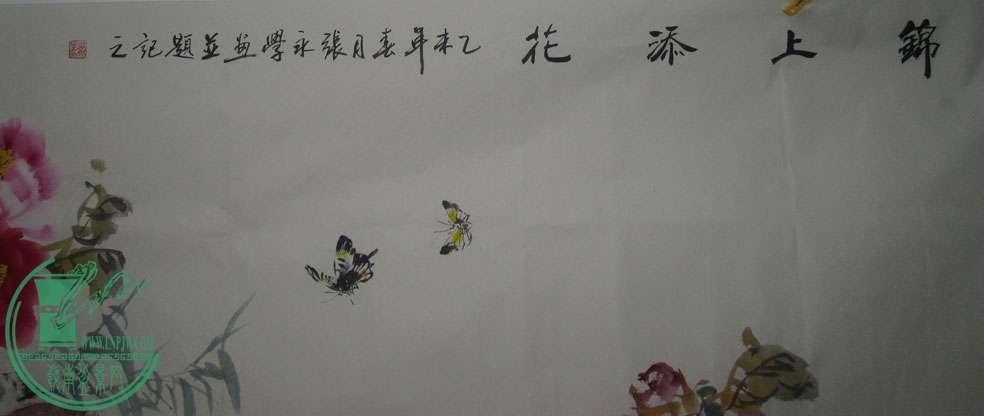 錦上添花
乙未年春月張永學畫並題記之
WWW.LNPJW.COM